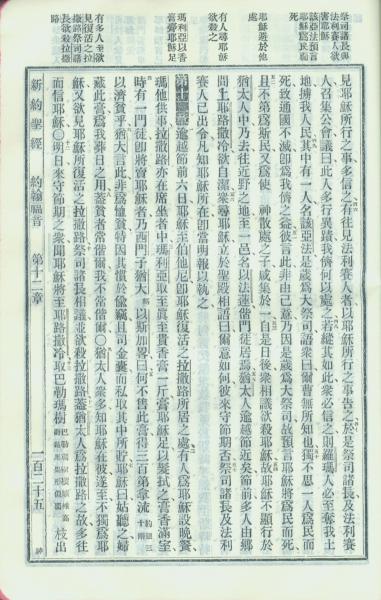 祭司諸長與
法利賽人欲
害耶穌
該亞法預言
耶穌爲民而
死
耶穌遊於他
處
有人尋耶穌
欲殺之
瑪利亞以香
膏膏耶穌足
有多人欲
見復活之拉
撒路
祭司諸長欲殺拉撒
見耶穌所行之事多信之有往見法利賽人者以耶穌所行之事告之於是祭司諸長及法利賽
人召集公會議曰此人多行異蹟我儕何以處之若縱其如此衆必信之則羅瑪人必至奪我土
地擄我人民其中有一人名該亞法是歲爲大祭司謂衆曰爾曹無所知也獨不思一人爲民而
死致通國不滅卽爲我儕之益彼言此非由己意乃因是歲爲大祭司故預言耶穌將爲民而死
且不第爲斯民又爲使 神散處之子咸集於一自是日後衆相議欲殺耶穌故耶穌不顯行於
猶太人中乃去往近野之地至一邑名以法蓮偕門徒居焉猶太人逾越節近矣節前多人由鄉
間上耶路撒冷欲自潔衆尋耶穌立於聖殿相語曰爾意如何彼來守節期否祭司諸長及法利
賽人已出令凡知耶穌所在卽當明報以執之
第十二章 逾越節前六日耶穌至伯他尼卽耶穌復活之拉撒路所居之處有人爲耶穌設晚餐
瑪他供事拉撒路亦在席坐者中瑪利亞取至眞至貴香膏一斤膏耶穌足以髮拭之膏香滿室
時有一門徒卽將賣耶穌者乃西門子猶大 以斯加畧曰何不售此膏得三百第拿流
以濟貧乎猶大言此非爲憐貧特因其慣於偷竊且司金囊而私取其中所貯耶穌曰姑聽之婦
藏此膏爲我葬日之用蓋貧者常偕爾我不常偕爾○猶太人衆多知耶穌在彼遂至不獨爲耶
穌又欲見耶穌所復活之拉撒路祭司諸長相議並欲殺拉撒路蓋猶太人爲拉撒路之故多往
而信耶穌○明日來守節期之衆聞耶穌將至耶路撒冷取巴勒瑪樹 枝出
新約聖經 約翰福音 第十二章 一百二十五